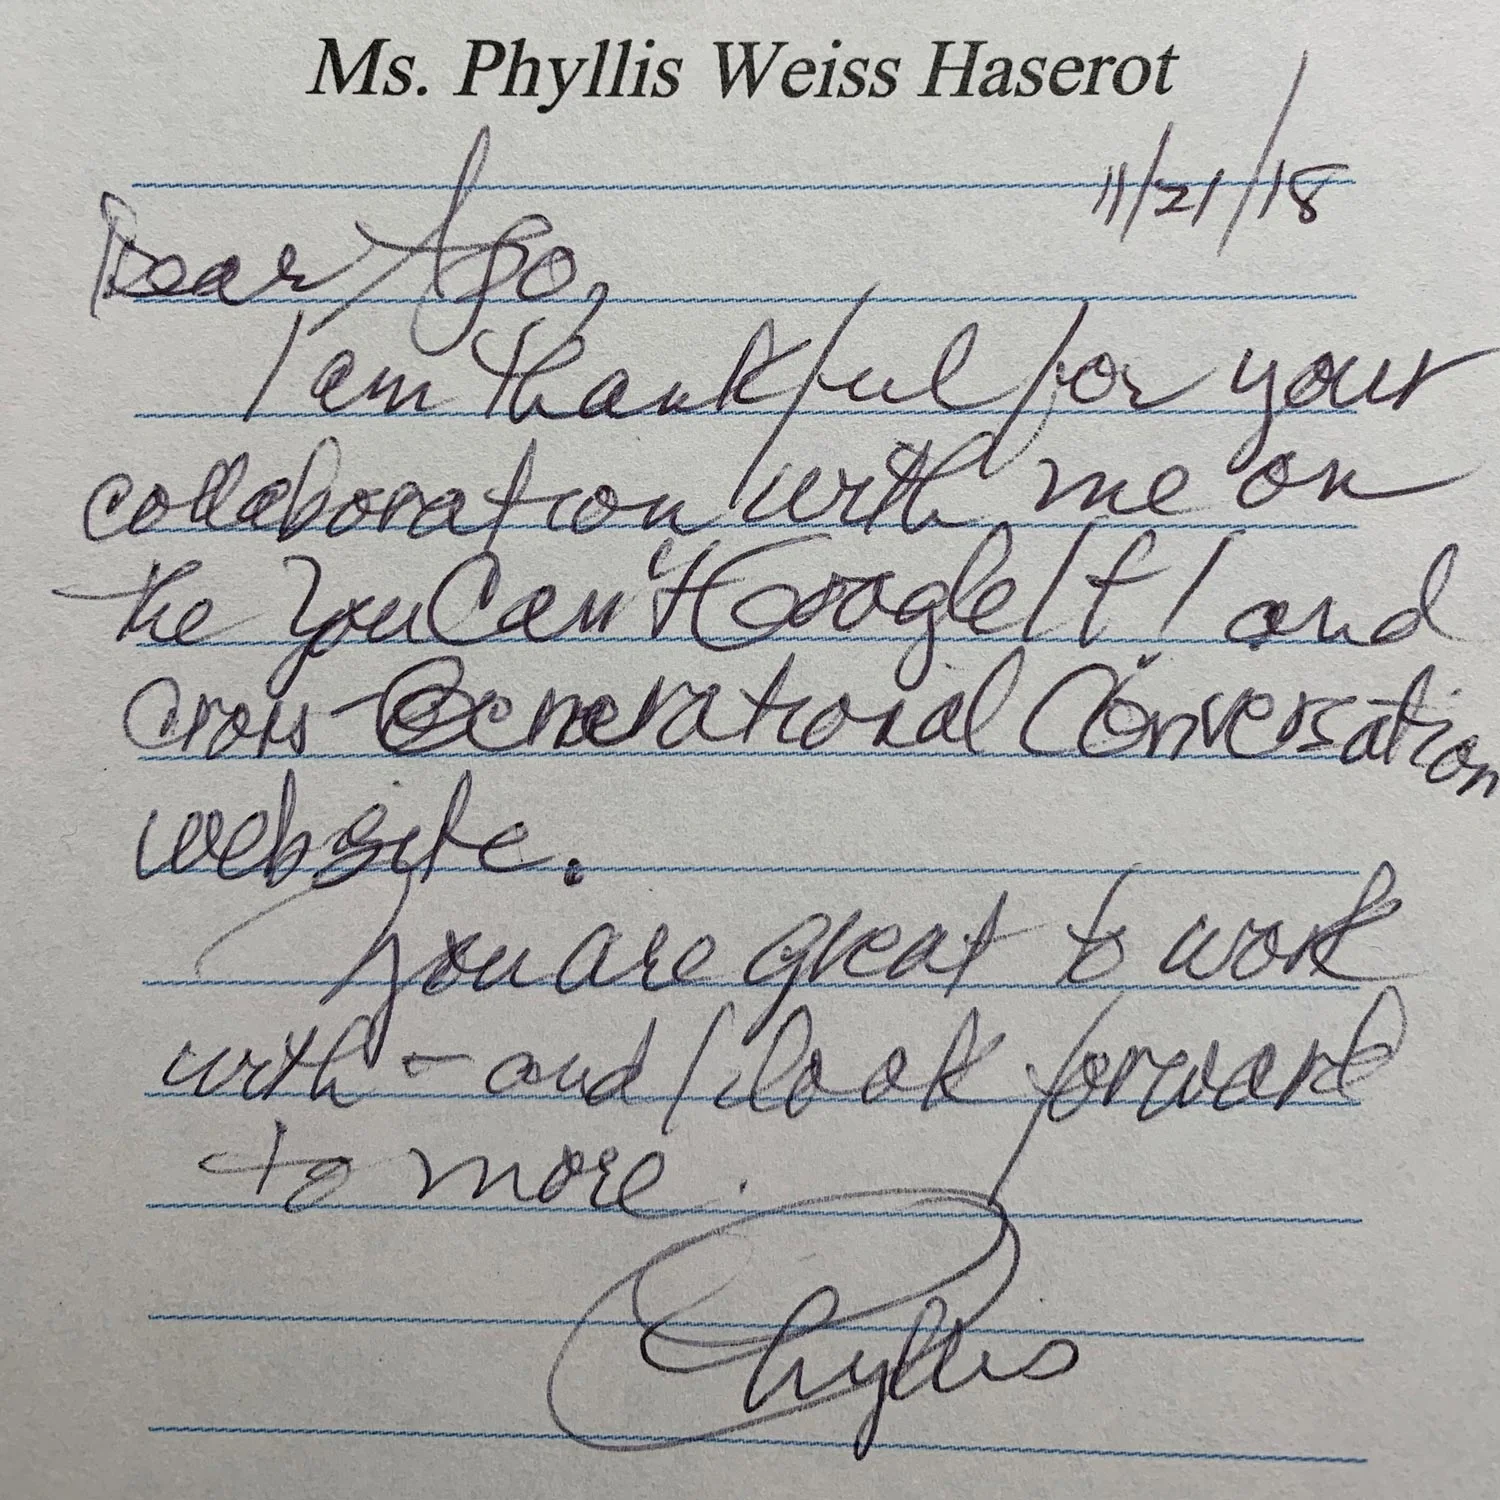 Ms. Phyllis Weiss Haserot
11/21/18
Dear Ago,
I am thankful for your
collaboration with me on
the YouCan'tGoogleIt! and
Cross-Generational Conversation
website.
You are great to work
with - and I look forward
to more.
Phyllis